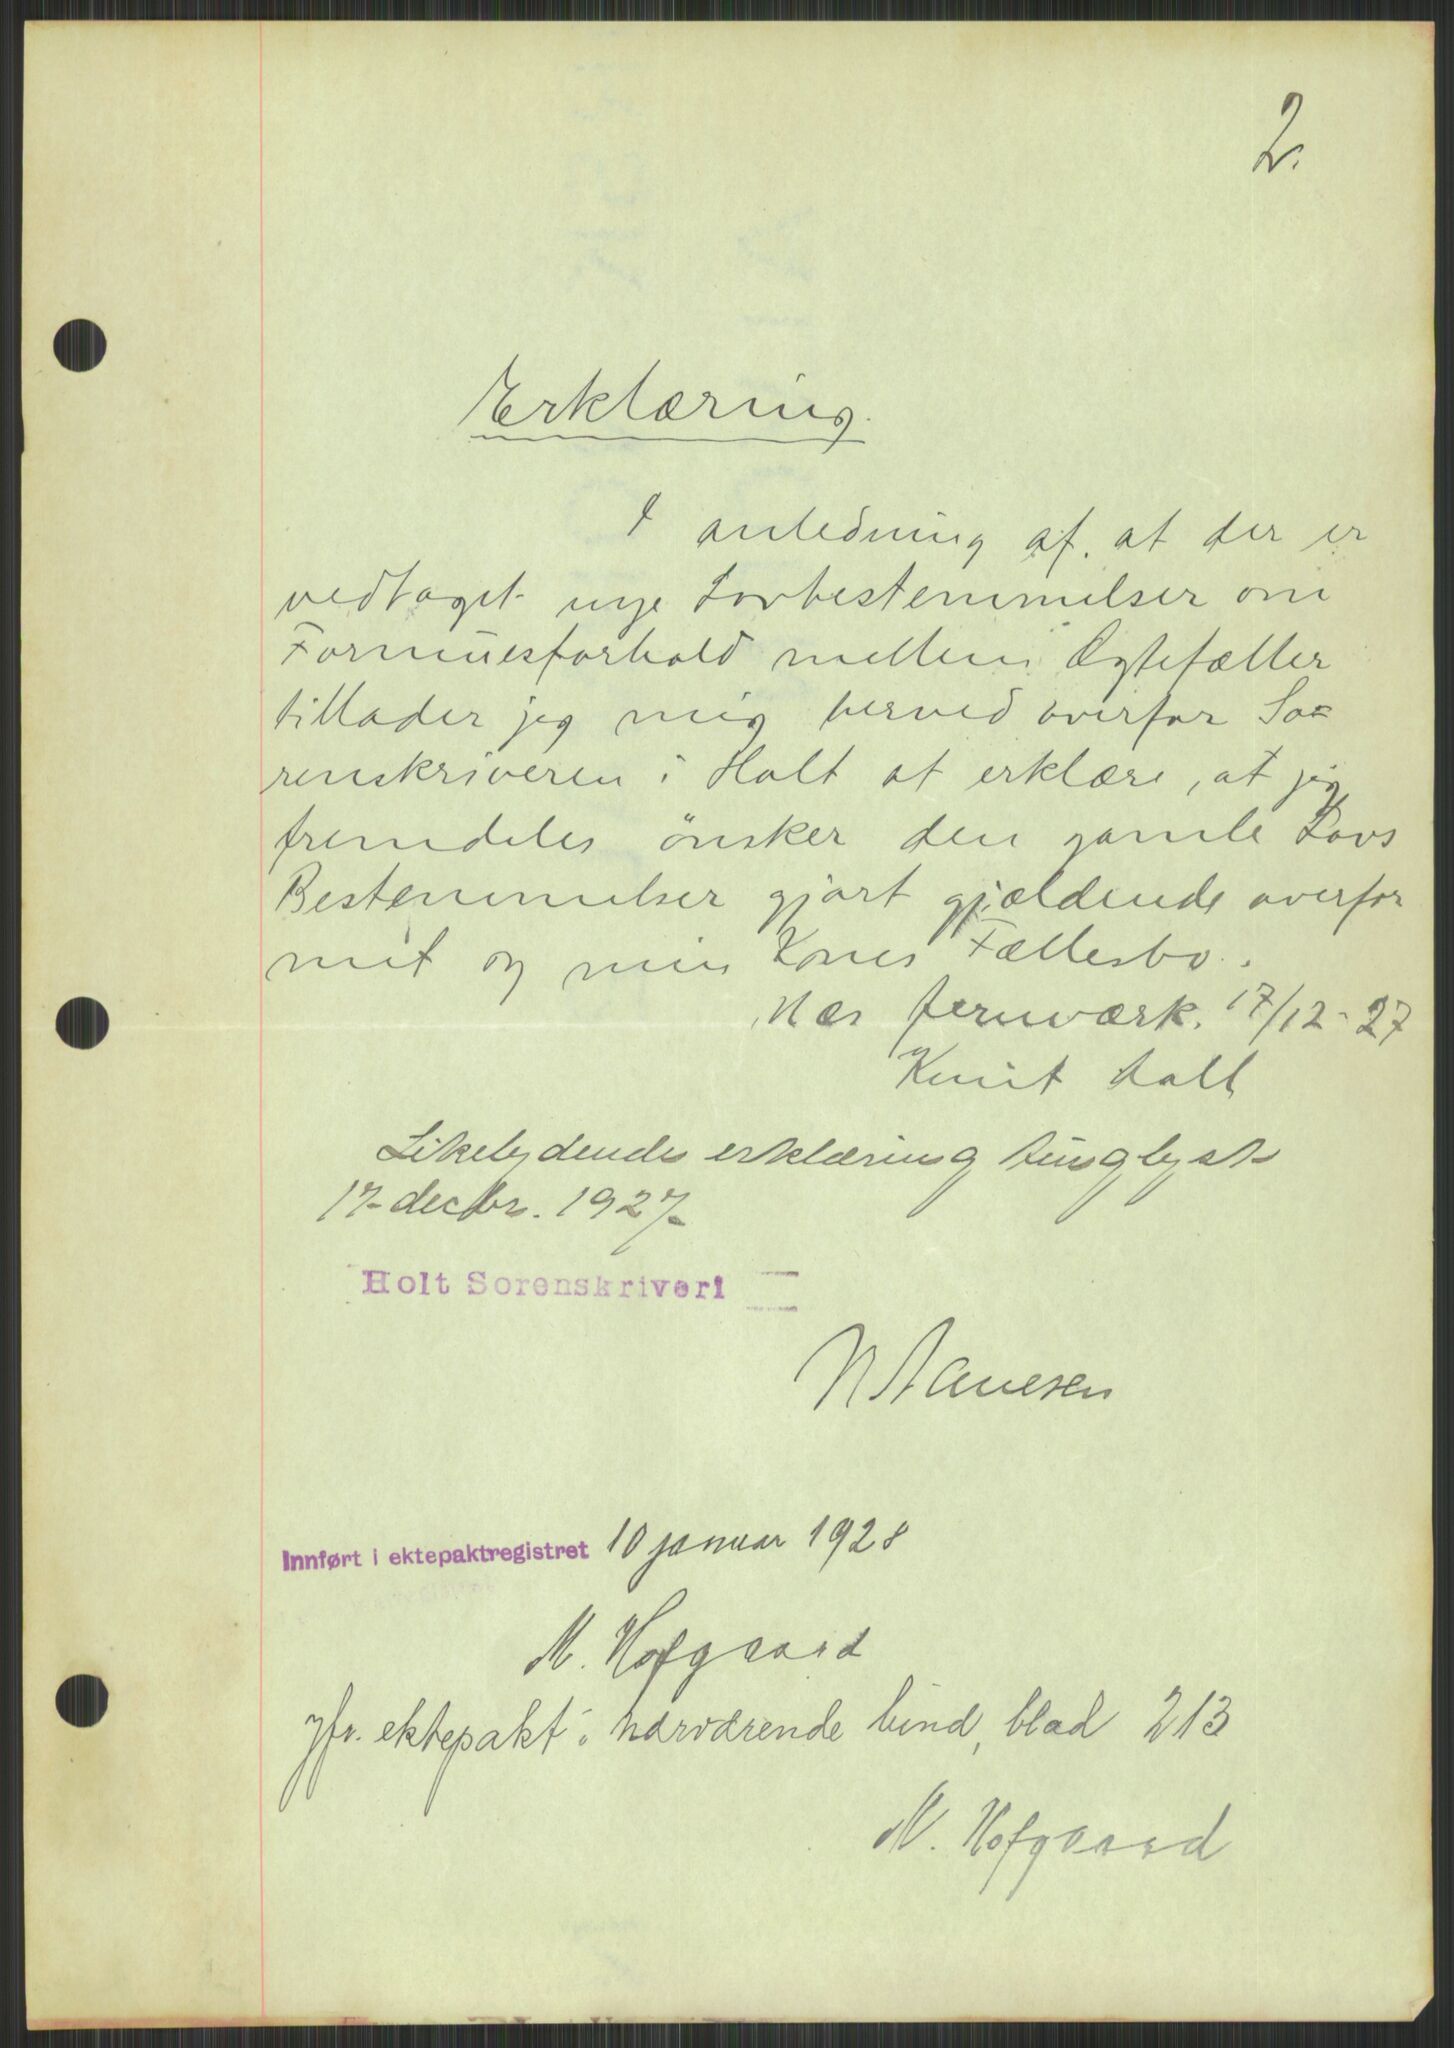 2.
Erklæring.
I anledning af, at der er
vedtaget nye Lovbestemmelser om
Formuesforhold mellem Ægtefæller
tillader jeg mig herved overfor So=
renskriveren i Holt at erklære, at jeg
fremdeles ønsker den gamle Lovs
Bestemmelser gjort gjældende overfor
mit og min Kones Fællesbo.
Næs Jernværk. 17/12-27
Knut
Likelydende erklæring tinglyst
17 decbr. 1927
Holt Sorenskriveri
Innført i ektepaktregistret 10 januar 1928
M. Hofgaard
jfr. ektepakt i nærværende bind, blad 213
M. Hofgaard